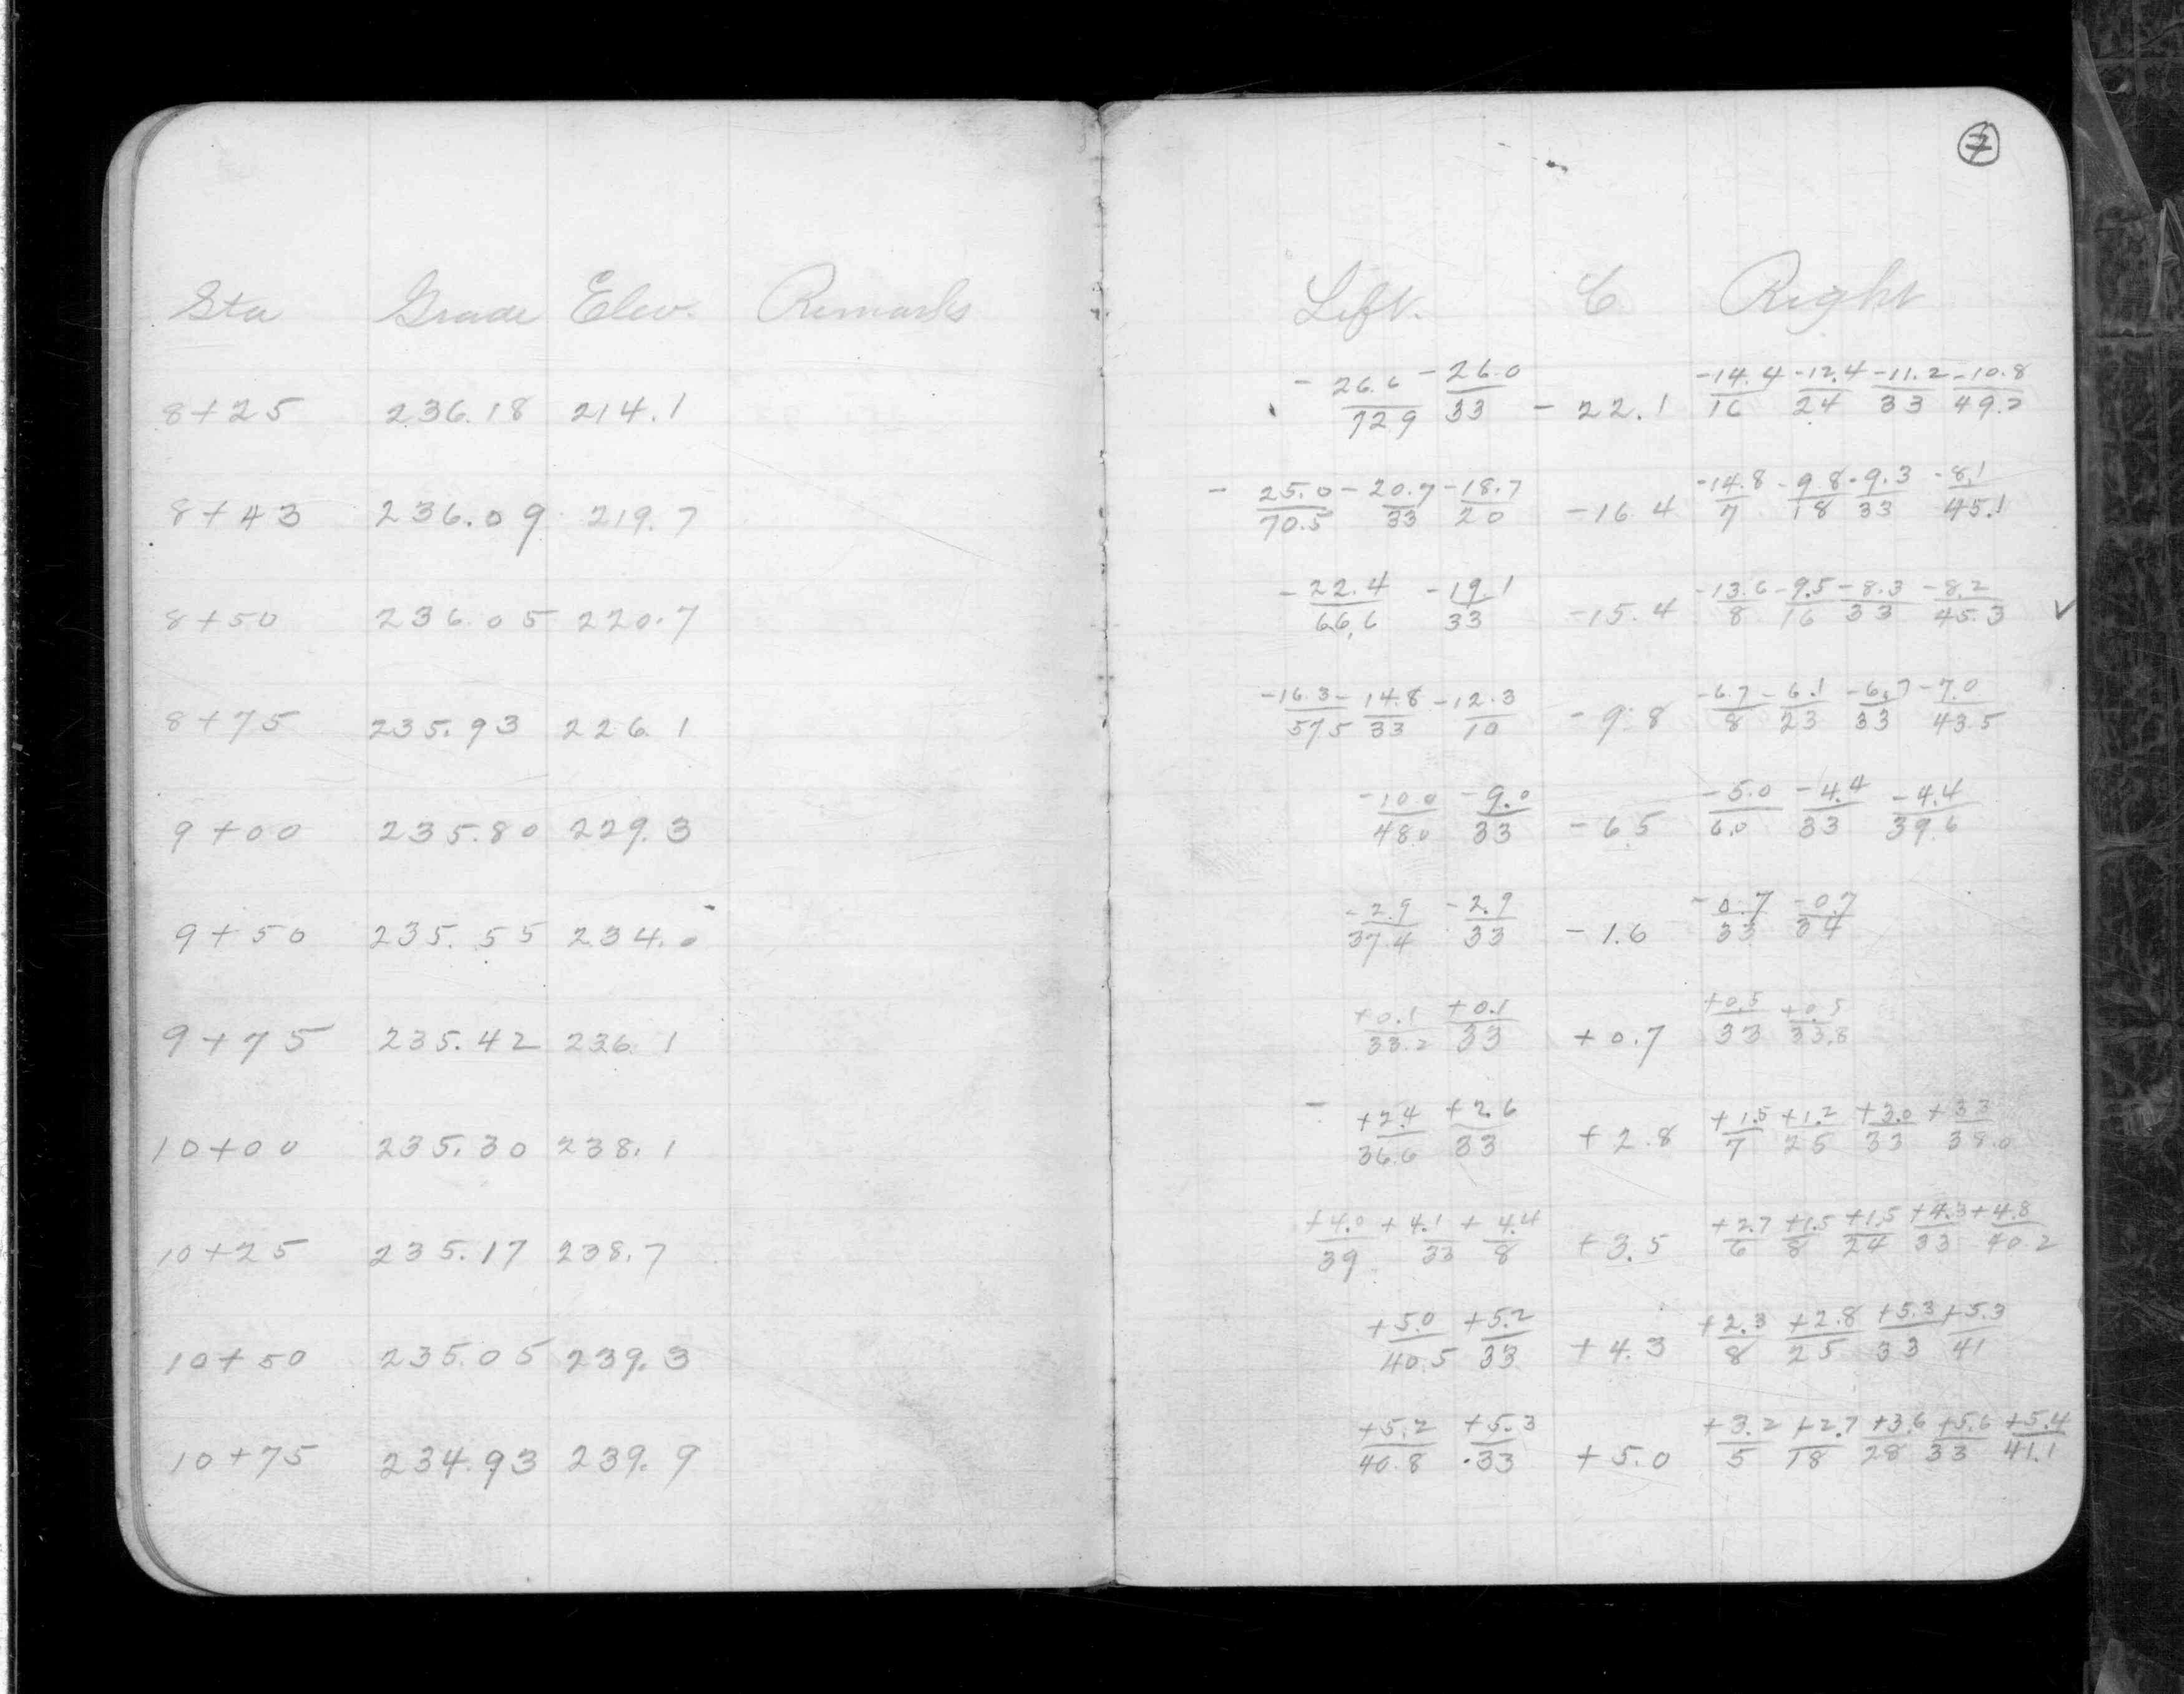 7
Sta Grade Elev. Remarks Left. C Right
8+25 236.18 214.1 -26.6/72.9 -26.0/33 -22.1 -14.4/16 -12.4/24 -11.2/33 -10.8/49.2
8+43 236.09 219.7 -25.0/70.5 -20.7/33 -18.7/20 -16.4 -14.8/7 -9.8/18 -9.3/33 -8.1/45.1
8+50 236.05 220.7 -22.4/66.6 -19.1/33 -15.4 -13.6/8 -9.5/16 -8.3/33 -8.2/45.3 ✓
8+75 235.93 226.1 -16.3/57.5 -14.8/33 -12.3/10 -9.8 -6.7/8 -6.1/23 -6.7/33 -7.0/43.5
9+00 235.80 229.3 -10.0/48.0 -9.0/33 -6.5 -5.0/6.0 -4.4/33 -4.4/39.6
9+50 235.55 234.0 -2.9/37.4 -2.9/33 -1.6 -0.7/33 -0.7/34
9+75 235.42 236.1 +0.1/33.2 +0.1/33 +0.7 +0.5/33 +0.5/33.8
10+00 235.30 238.1 - +2.4/36.6 +2.6/33 +2.8 +1.5/7 +1.2/25 +3.0/33 +3.3/38.0
10+25 235.17 238.7 +4.0/39 +4.1/33 +4.4/8 +3.5 +2.7/6 +1.5/8 +1.5/24 +4.3/33 +4.8/40.2
10+50 235.05 239.3 +5.0/40.5 +5.2/33 +4.3 +2.3/8 +2.8/25 +5.3/33 +5.3/41
10+75 234.93 239.9 +5.2/40.8 +5.3/33 +5.0 +3.2/5 +2.7/18 +3.6/28 +5.6/33 +5.4/41.1